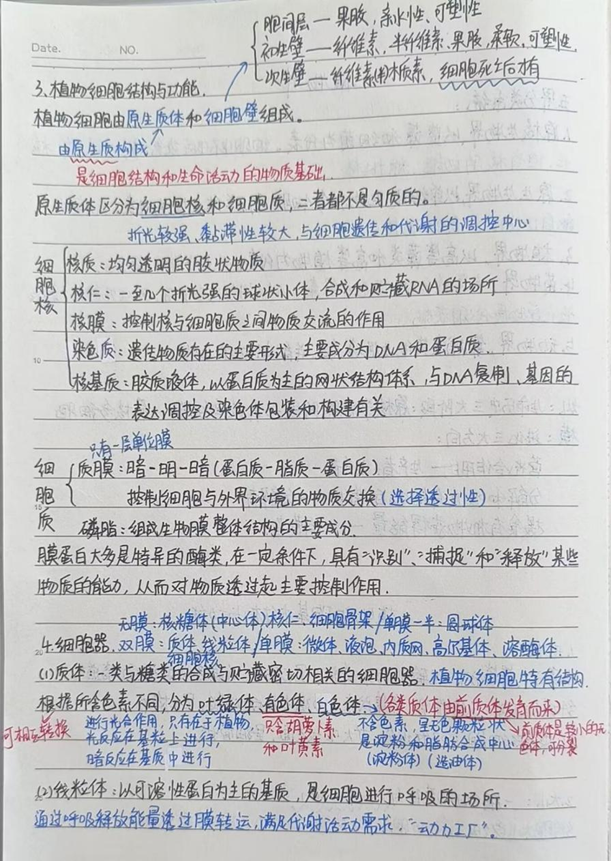 Date. NO.
胞间层—果胶,亲水性、可塑性
初生壁—纤维素,半纤维素,果胶,柔软,可塑性
次生壁—纤维素(木)木质素,细胞死后才有
3.植物细胞结构与功能.
植物细胞由原生质体和细胞壁组成。
由原生质构成
是细胞结构和生命活动的物质基础.
原生质体区分为细胞核和细胞质,二者都不是匀质的。
折光较强、黏滞性较大,与细胞遗传和代谢的调控中心
细胞核
核质:均匀透明的胶状物质
核仁:一至几个折光强的球状小体,合成和贮藏RNA的场所
核膜:控制核与细胞质之间物质交流的作用
染色质:遗传物质存在的主要形式,主要成分为DNA和蛋白质.
核基质:胶质液体,以蛋白质为主的网状结构体系,与DNA复制、基因的
表达调控及染色体包装和构建有关
只有一层单位膜
细胞质
质膜:暗-明-暗(蛋白质-脂质-蛋白质)
控制细胞与外界环境的物质交换(选择透过性)
磷脂:组成生物膜整体结构的主要成分.
膜蛋白大多是特异的酶类,在一定条件下,具有"识别"、"捕捉"和"释放"某些
物质的能力,从而对物质透过起主要控制作用.
无膜:核糖体(中心体)核仁、细胞骨架/单膜一半:圆球体
4.细胞器.双膜:质体、线粒体/单膜:微体、液泡、内质网、高尔基体、溶酶体.
细胞核
(1)质体:一类与糖类的合成与贮藏密切相关的细胞器.植物细胞特有结构.
根据所含色素不同,分为叶绿体、有色体、白色体→(各类质体由前质体发育而来)
可相互转换
进行光合作用,只存在于植物,
光反应在基粒上进行,
暗反应在基质中进行
只含胡萝卜素
和叶黄素
不含色素,呈无色颗粒状
是淀粉和脂肪合成中心
(淀粉体)(造油体)
前质体是较小的无
色体,可分裂
(2)线粒体:以可溶性蛋白为主的基质,是细胞进行呼吸的场所.
通过呼吸释放能量透过膜转运,满足代谢活动需求,"动力工厂".